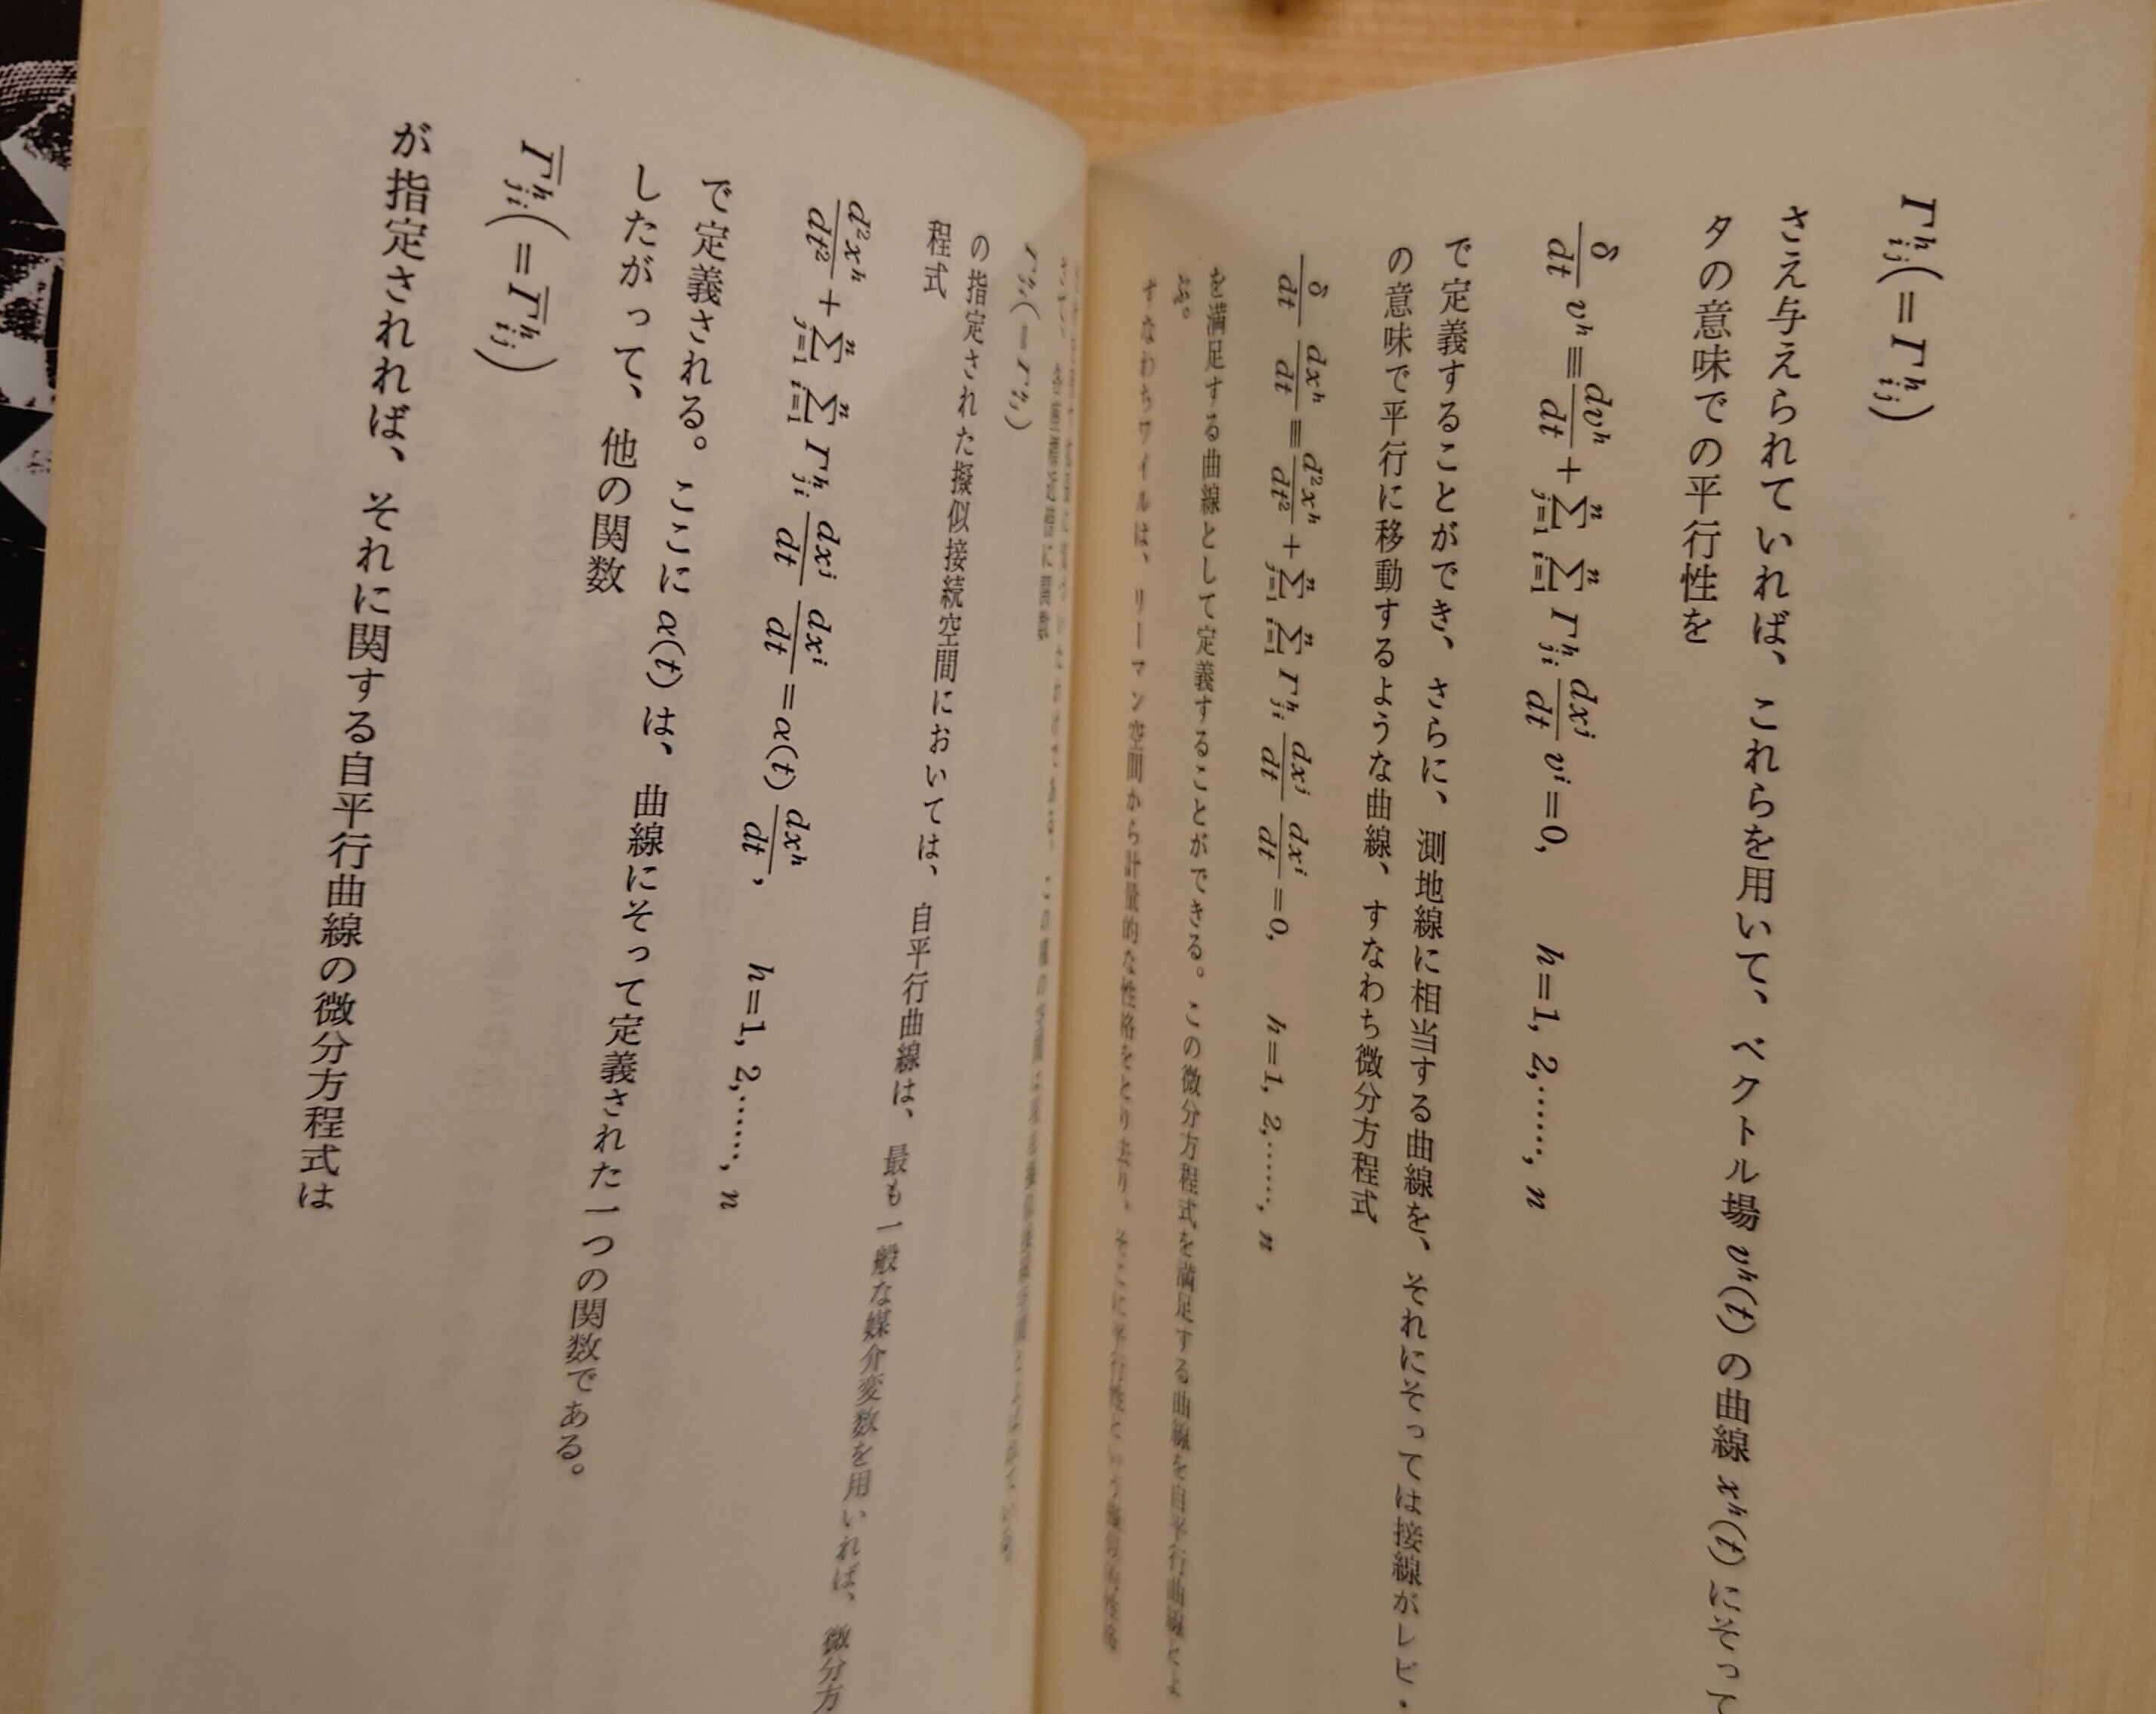 Γʰⱼᵢ(=Γʰᵢⱼ)
さえ与えられていれば、これらを用いて、ベクトル場 vʰ(t) の曲線 xʰ(t) にそって
タの意味での平行性を
δ/dt vʰ ≡ dvʰ/dt + Σⁿⱼ₌₁ Σⁿᵢ₌₁ Γʰⱼᵢ dxʲ/dt vⁱ = 0,　h=1, 2,……, n
で定義することができ、さらに、測地線に相当する曲線を、それにそっては接線がレビ・
の意味で平行に移動するような曲線、すなわち微分方程式
δ/dt dxʰ/dt ≡ d²xʰ/dt² + Σⁿⱼ₌₁ Σⁿᵢ₌₁ Γʰⱼᵢ dxʲ/dt dxⁱ/dt = 0,　h=1, 2,……, n
を満足する曲線として定義することができる。この微分方程式を満足する曲線を自平行曲線とよ
ぶ。
すなわちワイルは、リーマン空間から計量的な性格をとり去り、そこに平行性という
の指定された擬似接続空間においては、自平行曲線は、最も一般な媒介変数を用いれば、微分方
程式
d²xʰ/dt² + Σⁿⱼ₌₁ Σⁿᵢ₌₁ Γʰⱼᵢ dxʲ/dt dxⁱ/dt = α(t) dxʰ/dt,　h=1, 2,……, n
で定義される。ここに α(t) は、曲線にそって定義された一つの関数である。
したがって、他の関数
Γ̅ʰⱼᵢ(=Γ̅ʰᵢⱼ)
が指定されれば、それに関する自平行曲線の微分方程式は